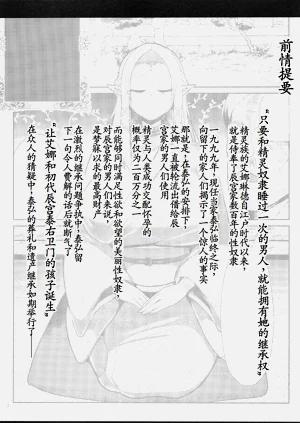 前情提要
“只要和精灵奴隶睡过一次的男人，就能拥有她的继承权”
精灵族的艾娜琳德自江户时代以来，
就是侍奉了辰宫家数百年的性奴隶，
一九九九年，现任当家泰弘临终之际，
向留下的家人们揭示了一个惊人的事实
那就是，在泰弘的安排下，
艾娜一直被轮流出借给辰
宫家的男人们使用
精灵与人类成功交配怀孕的
概率仅为二百万分之一
而能够同时满足性欲和欲望的美丽性奴隶，
对辰宫家的男人们来说，
是梦寐以求的最高财产
在激烈的继承问题争执中，泰弘留
下一句令人费解的话后就断气了
“让艾娜和初代辰宫泰右卫门的孩子诞生”
在众人的猜疑中，泰弘的葬礼和遗产继承如期举行了